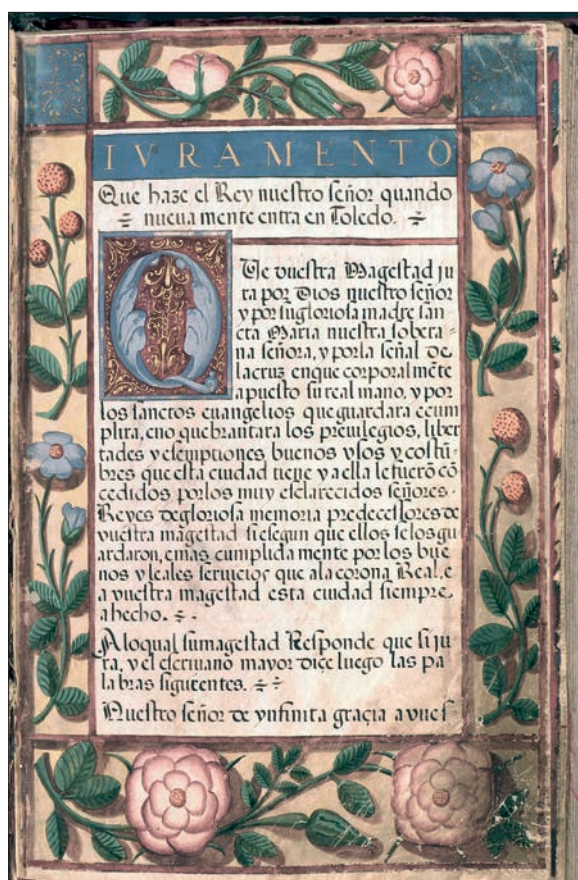 IVRAMENTO
Que haze el Rey nuestro señor quando
nueua mente entra en Toledo.
QUe vuestra Magestad ju
ra por Dios nuestro señor
y por su gloriosa madre san
cta Maria nuestra sobera
na señora, y por la señal de
la cruz en que corporal mẽte
a puesto su real mano, y por
los sanctos euangelios que guardara e cum
plira, e no quebrantara los preuilegios, liber
tades y esemptiones buenos vsos y costũ
bres que esta ciudad tiene y a ella le fuerõ cõ
cedidos por los muy esclarecidos señores
Reyes de gloriosa memoria predecessores de
vuestra magestad si e segun que ellos se los gu
ardaron, e mas cumplida mente por los bue
nos y leales seruicios que a la corona Real, e
a vuestra magestad esta ciudad siempre
a hecho.
A lo qual su magestad Responde que si ju
ra, y el escriuano mayor diçe luego las pa
labras siguientes.
Nuestro señor de ynfinita graçia a vues